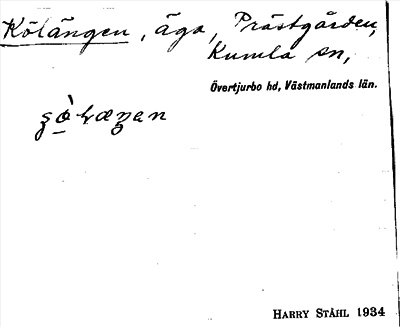 Kölängen, äga, Prästgården,
Kumla sn,
Övertjurbo hd, Västmanlands län.
HARRY STÅHL 1934